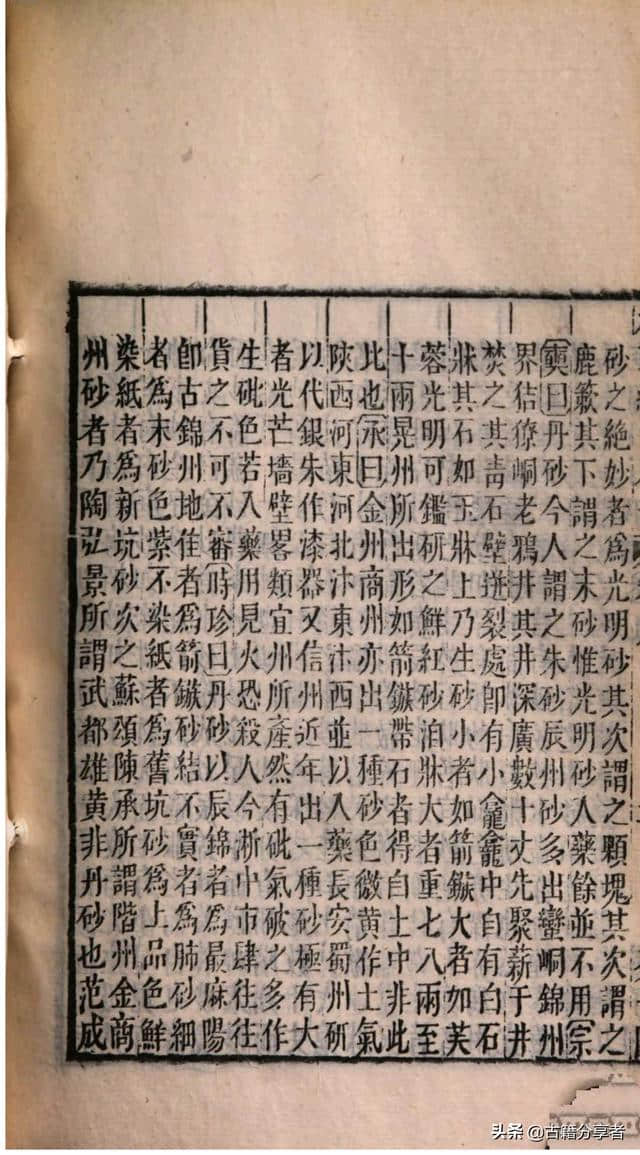 砂之絶妙者爲光明砂其次謂之顆塊其次謂之
鹿簌其下謂之末砂惟光明砂入藥餘並不用宗
奭曰丹砂今人謂之朱砂辰州砂多出蠻峒錦州
界狤獠峒老鴉井其井深廣數十丈先聚薪于井
焚之其青石壁迸裂處卽有小龕龕中自有白石
牀其石如玉牀上乃生砂小者如箭鏃大者如芙
蓉光明可鑑研之鮮紅砂洎牀大者重七八兩至
十兩晃州所出形如箭鏃帶石者得自土中非此
比也承曰金州商州亦出一種砂色微黃作土氣
陝西河東河北汴東汴西並以入藥長安蜀州研
以代銀朱作漆器又信州近年出一種砂極有大
者光芒墻壁畧類宜州所產然有砒氣破之多作
生砒色若入藥用見火恐殺人今淅中市肆往往
貨之不可不審時珍曰丹砂以辰錦者爲最麻陽
卽古錦州地佳者爲箭鏃砂結不實者爲肺砂細
者爲末砂色紫不染紙者爲舊坑砂爲上品色鮮
染紙者爲新坑砂次之蘇頌陳承所謂階州金商
州砂者乃陶弘景所謂武都雄黃非丹砂也范成
头条 @古籍分享者